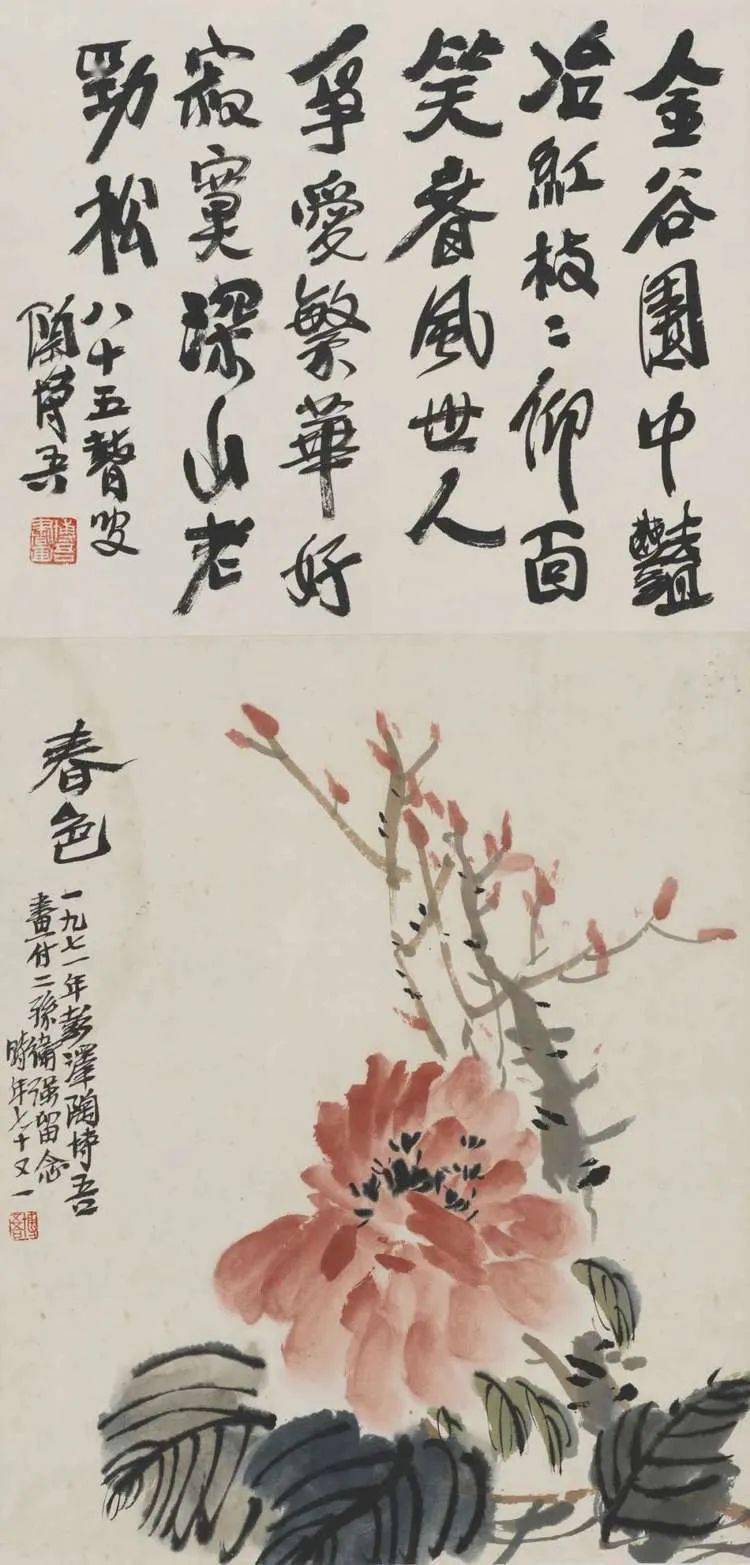 金谷園中豔
冶紅枝〻仰面
笑春風世人
爭愛繁華好
寂寞深山老
勁松
八十五瞽叟
陶博吾
博吾書畫
春色
一九七一年彭澤陶博吾
畫付二孫繡强留念
時年七十又一
博吾